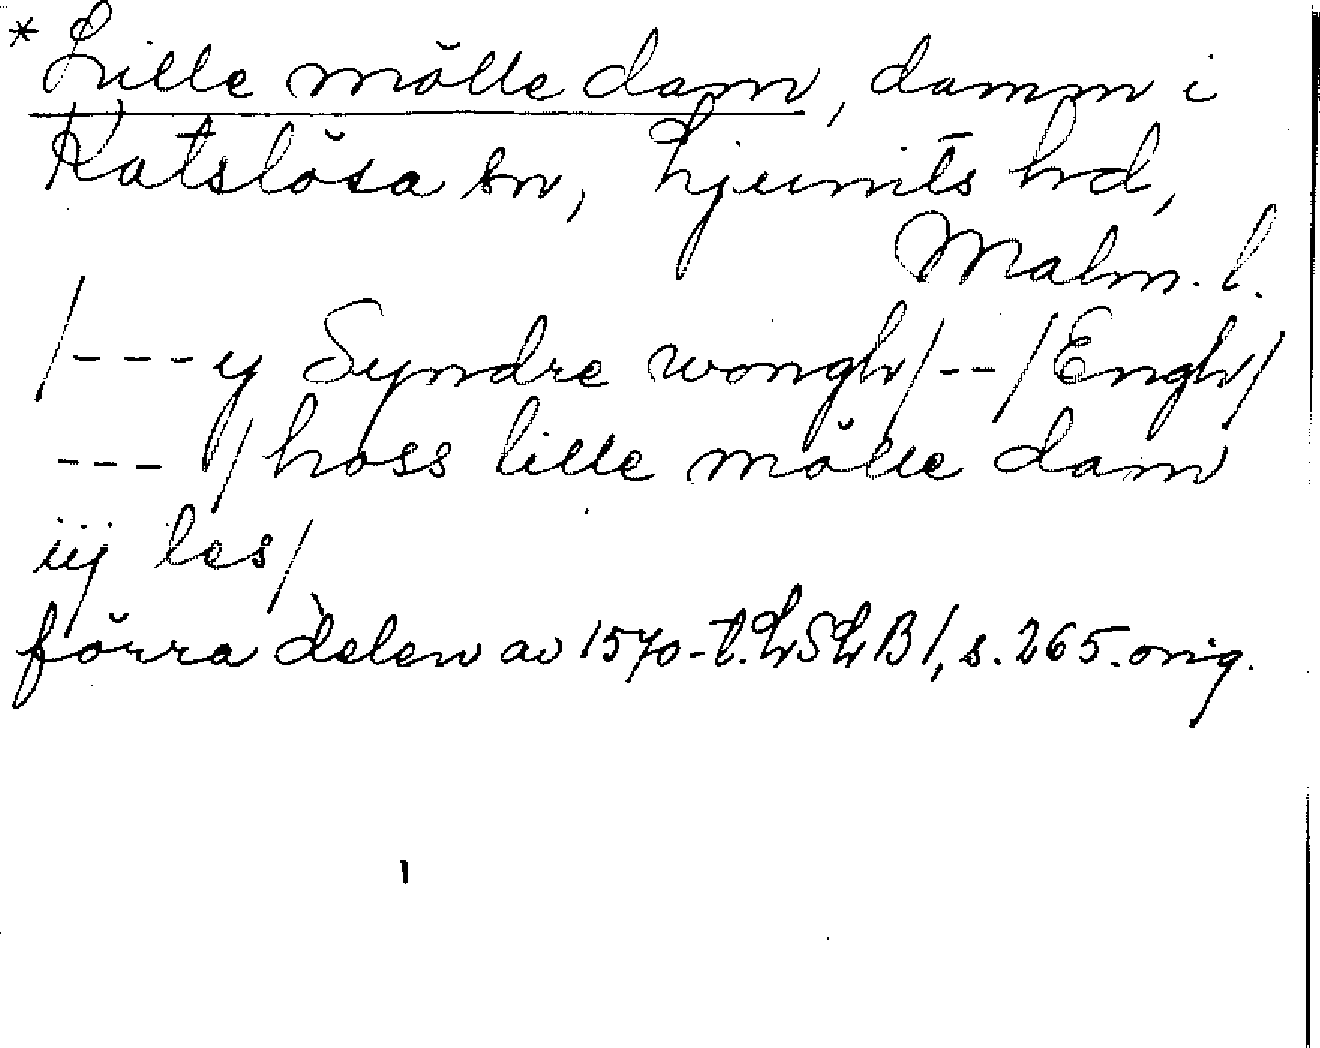 *Lille mölle dam, damm i
Katslösa sn, Ljunits hd,
Malm. l.
/---y Syndre wongh/--/Engh/
---/hoss lille mölle dam
iij les/
förra delen av 1570-t. LSLB1, s. 265. orig.